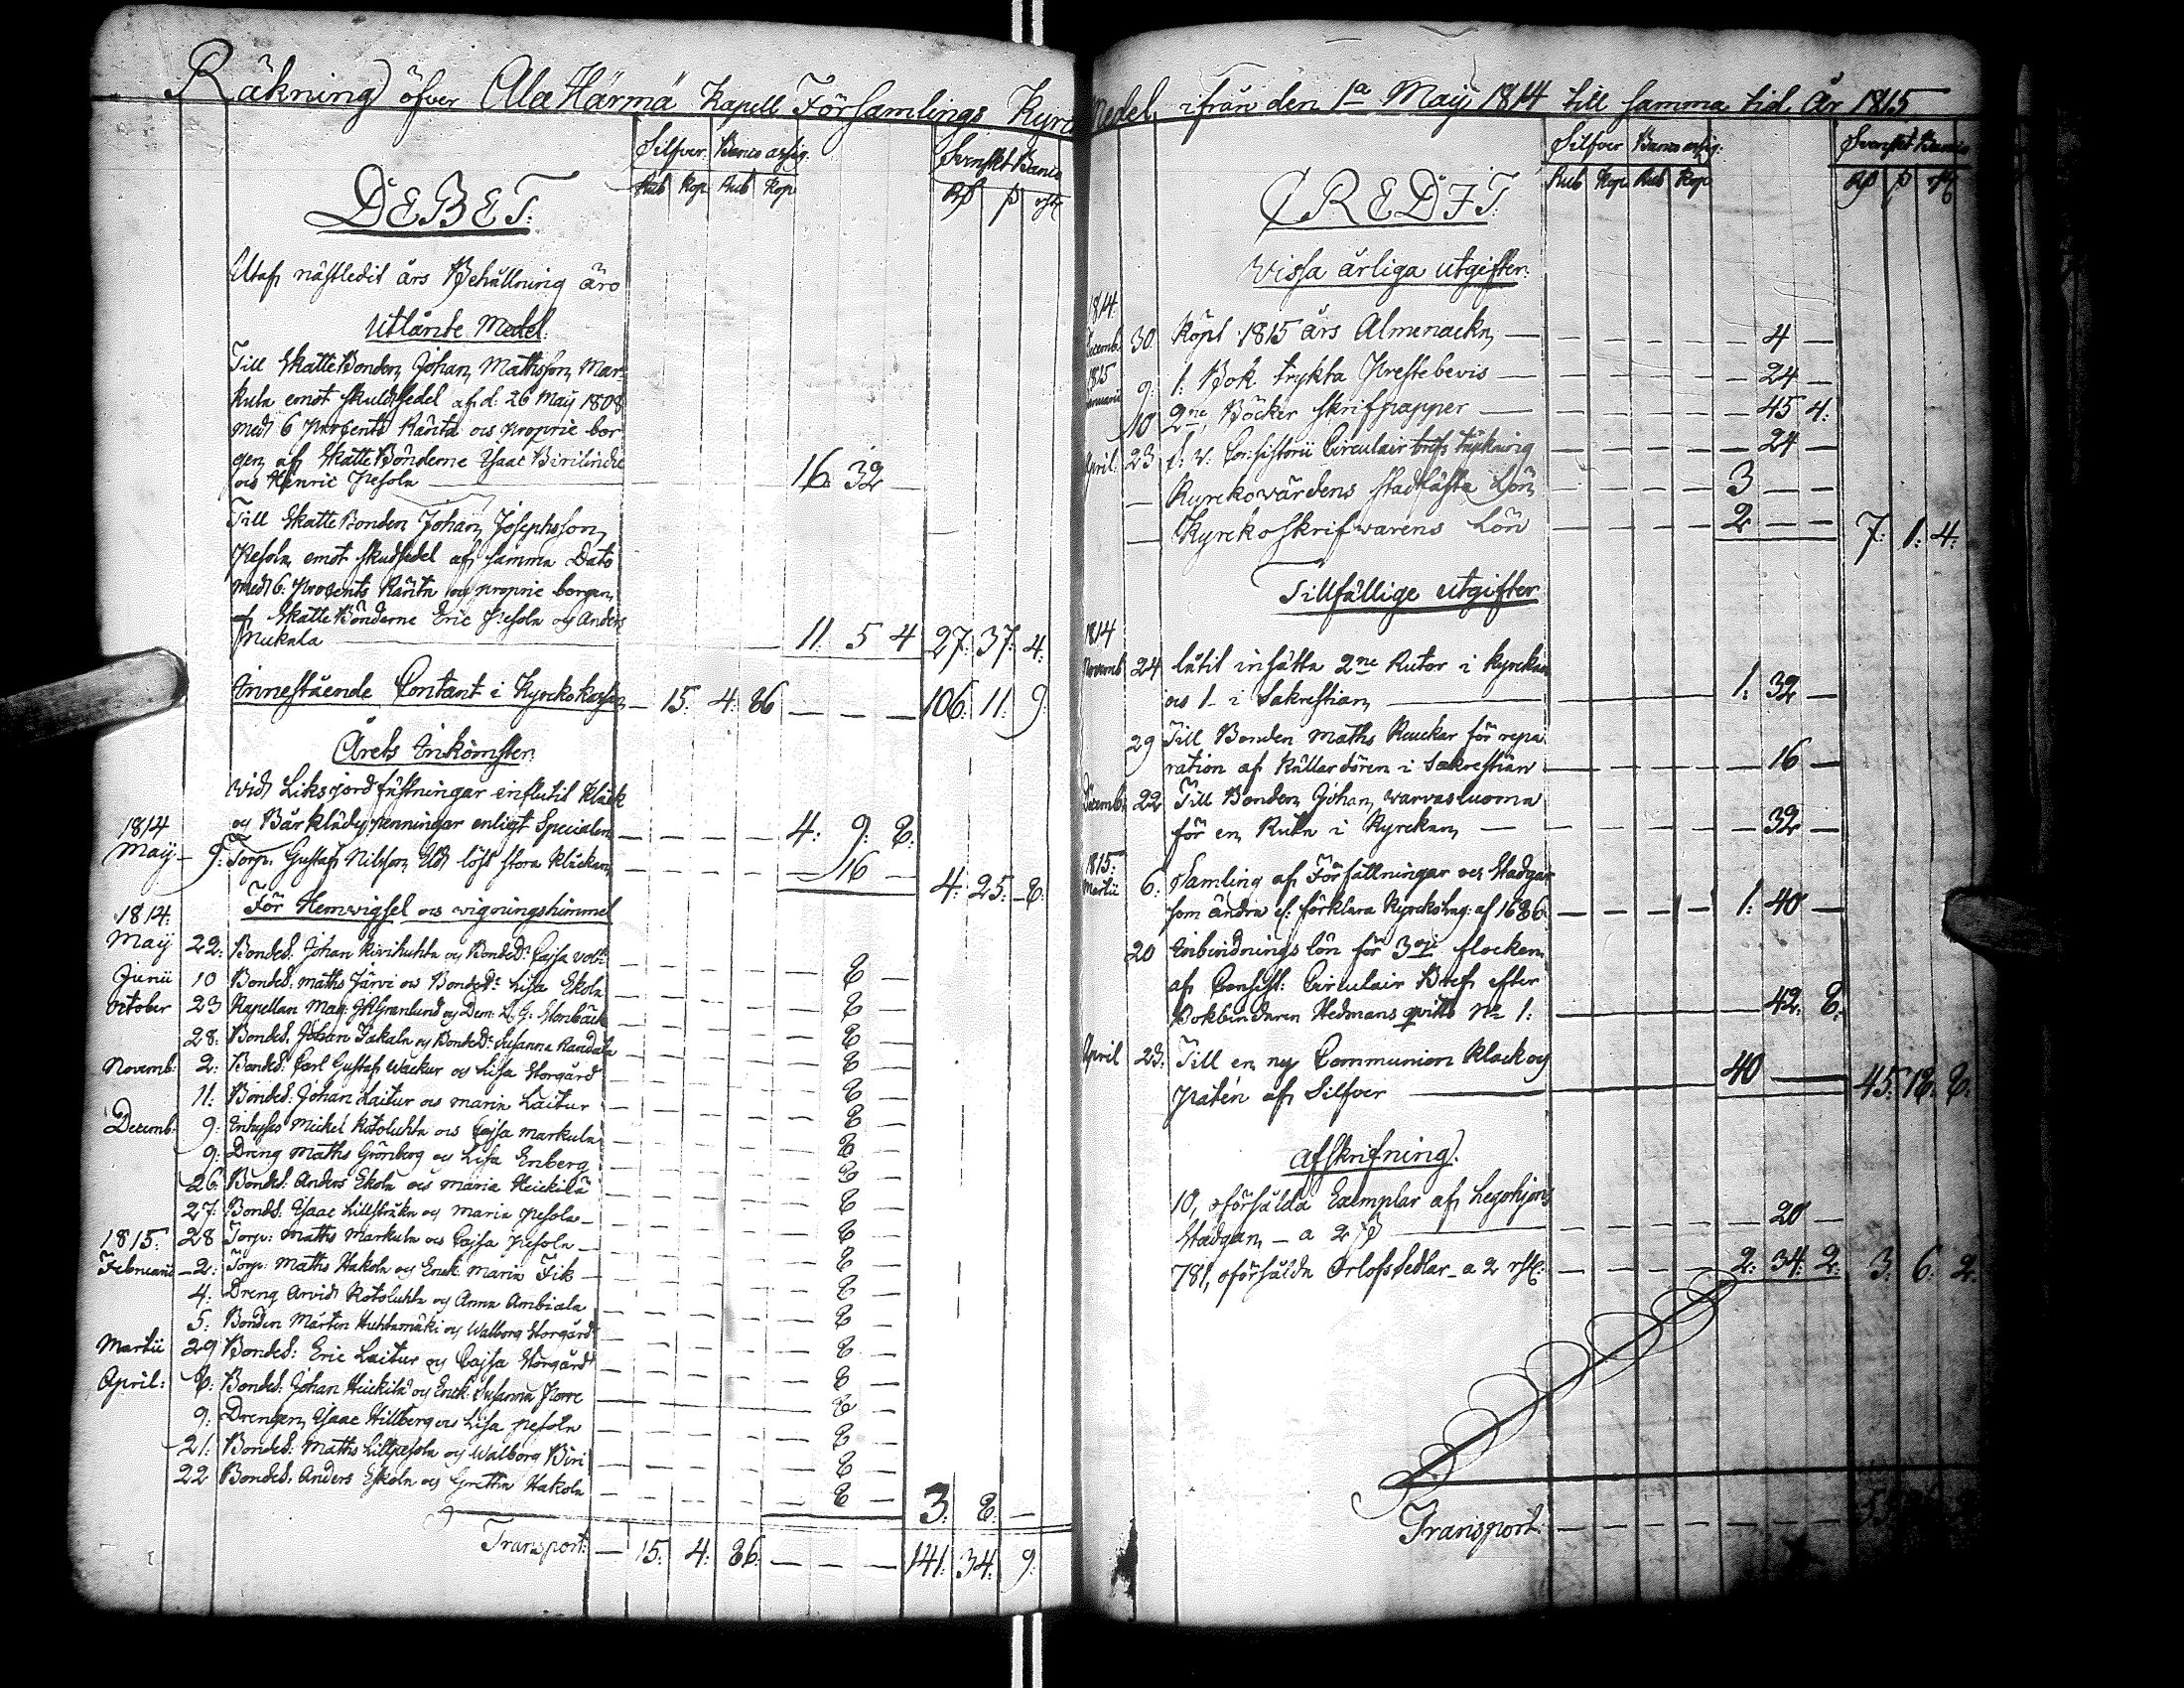 Räkning öfver Ala Härmä Kapell Församlings Kyrc
Silfver. Banco assig. Svenskt Banco
Rub Kop Rub Kop Rß ß rst
DEBET:
Utaf nästledit års Behållning äro
Utlånte Medel:
Till Skatte Bonden Johan Mathsson Mar-
kula emot skuldsedel af d: 26 May 1808
med 6 Procents Ränta och proprie bor-
gen af Skatte Bönderne Isaac Birilindre
och Henric Pesola — 16. 32 —
Till Skatte Bonden Johan Josephsson
Pesola emot skuldsedel af samma Dato
med 6. Procents Ränta och proprie borgen
af Skatte Bönderne Eric Pesola och Anders
Nukala — 11. 5 4 27. 37. 4.
Innestående Contant i Kyrckokassan — 15. 4. 86 — — — 106. 11. 9.
Årets Inkomster.
Vid Liksjordfästningar influtit Kläck
1814 och Bårklädspenningar enligt Specialen — — — — 4. 9. 8.
May — 9. Torp. Gustaf Nilsson Eld löst stora Kläckan — — — — — 16 — 4. 25. 8.
För Hemvigsel och vigningshimmel
1814.
May 22. Bondes. Johan Kivihuhta och Bonded. Cajsa Volt — — — — — 8 —
Junii 10 Bondes. Maths Järvi och Bonded. Lisa Ekola — — — — — 8 —
October 23 Kapellan Mag. Granlund och Dem. L. G. Stenbäck — — — — — 8 —
28. Bondes. Johan Jakala och Bonded. Susanna Randala — — — — — 8 —
Novemb. 2. Bondes. Carl Gustaf Wackur och Lisa Storgård — — — — — 8 —
11. Bondes. Johan Laitur och Maria Laitur — — — — — 8 —
Decemb. 9. Inhyses Mickel Kotoluhta och Cajsa Markula — — — — — 8 —
9. Dräng Maths Grönberg och Lisa Enberg — — — — — 8 —
26 Bondes. Anders Ekola och Maria Heickilä — — — — — 8 —
27. Bondes. Isaac Lillstråka och Maria Pesola — — — — — 8 —
1815. 28 Torp. Maths Markula och Cajsa Pesola — — — — — 8 —
Februarii — 2. Torp. Maths Hakola och Enck. Maria Fik — — — — — 8 —
4. Dreng Arvid Kotoluhta och Anna Ambiala — — — — — 8 —
5. Bonden Mårten Huhtamäki och Walborg Storgård — — — — — 8 —
Martii 29 Bondes. Eric Laitur och Cajsa Storgård — — — — — 8 —
April. 8. Bondes. Johan Heickilä och Enck. Susanna Porre — — — — — 8 —
9. Drengen Isaac Hillberg och Lisa Pesola — — — — — 8 —
21. Bondes. Maths Lillpesola och Walborg Biri — — — — — 8 —
22 Bondes. Anders Ekola och Gretha Hakola — — — — — 8 — 3. 8. —
Transport. — 15. 4. 86. — — — 141. 34. 9.
Medel ifrån den 1a May 1814 till samma tid År 1815
Silfver Banco assig. Svenskt Banco
Rub Kop Rub Kop Rß ß rst
CREDIT:
Vissa årliga utgifter.
1814.
Decemb. 30 Köpt 1815 års Almenackn — — — — — 4 —
1815
9. 1. Bok trykta Prestebevis — — — — — 24 —
10 2ne Böcker skrifpapper — — — — — 45 4.
April. 23 f. v. Consistorii Circulair brefs tryckning — — — — — 24 —
— Kyrckovärdens stadfästa Lön — — — — 3 — —
— Kyrckoskrifwarens Lön — — — — 2 — — 7. 1. 4.
Tillfällige utgifter
1814
Novemb 24 låtit insätta 2ne Rutor i Kyrckan
och 1 i Sakrestian — 1. 32 —
29 Till Bonden Maths Kuckar för repa-
ration af Källardören i Sakrestian — — — — — 16 —
Decemb. 22 Till Bonden Johan Warvasluoma
för en Ruta i Kyrckan — — — — — 32 —
1815.
Martii 6. Samling af Författningar och Stadgar
som ändra el. förklara Kyrckolag. af 1686 — — — — 1. 40 —
20 Inbindningslön för 3ne flocken
af Consist. Circulair Bref efter
Bokbindaren Hedmans qvitto No 1. — 42. 8.
April 23. Till en ny Communion Klack och
Patén af Silfver — 40 — 45. 18. 8.
Afskrifning.
10, oförsålda Exemplar af Legohjons
Stadgan — a 2 ß — — — — — 20 —
781, oförsålda Orlofssedlar — a 2 rst. — — — — 2. 34. 2. 3. 6. 2.
Transport. — — — — — — —